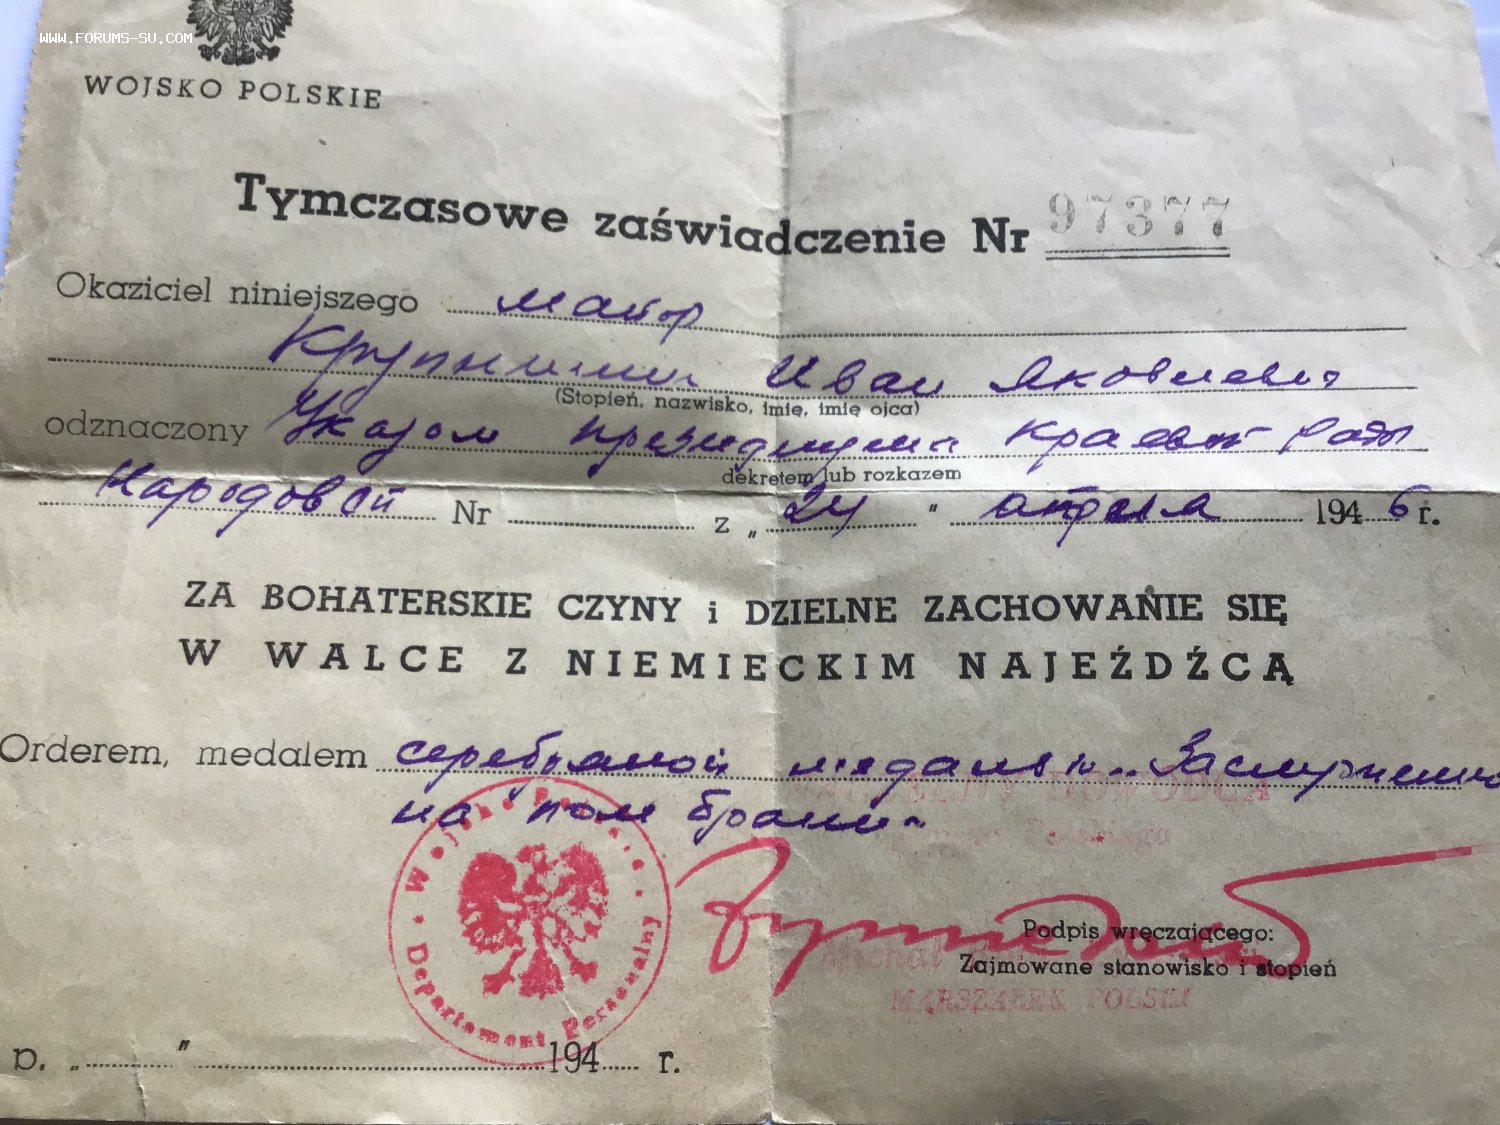 WWW.FORUMS-SU.COM
WOJSKO POLSKIE
Tymczasowe zaświadczenie Nr 97377
Okaziciel niniejszego майор
Иван Яковлевич
(Stopień, nazwisko, imię, imię ojca)
odznaczony Указом президиума краевой Рады
dekretem lub rozkazem
Народовой Nr z „ 24 " апреля 1946 r.
ZA BOHATERSKIE CZYNY i DZIELNE ZACHOWANIE SIĘ
W WALCE Z NIEMIECKIM NAJEŹDŹCĄ
Orderem, medalem серебряной медалью „Заслуженным
на поле брани"
NACZELNY DOWÓDCA
Wojska Polskiego
Wojsko Polskie
Departament Personalny
Podpis wręczającego:
Michał
Zajmowane stanowisko i stopień
MARSZAŁEK POLSKI
p. „ " 194 r.